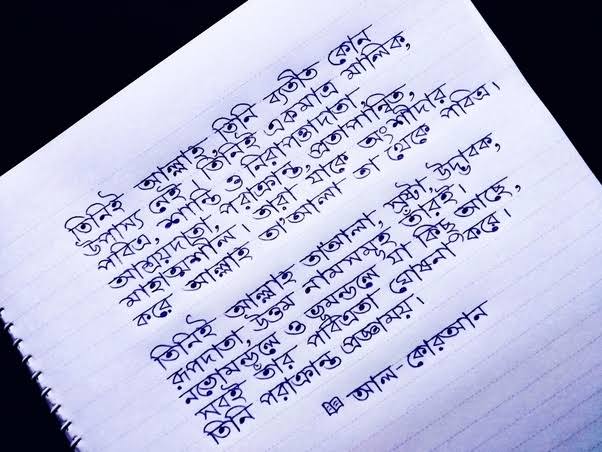 তিনিই আল্লাহ, তিনি ব্যতীত কোন
উপাস্য নেই। তিনিই একমাত্র মালিক,
পবিত্র, শান্তি ও নিরাপত্তাদাতা,
আশ্রয়দাতা, পরাক্রান্ত, প্রতাপান্বিত,
মাহাত্মশীল। তারা যাকে অংশীদার
করে আল্লাহ তা'আলা তা থেকে পবিত্র।
তিনিই আল্লাহ তা'আলা, স্রষ্টা, উদ্ভাবক,
রূপদাতা, উত্তম নামসমূহ তাঁরই।
নভোমন্ডলে ও ভূমন্ডলে যা কিছু আছে,
সবই তাঁর পবিত্রতা ঘোষনা করে।
তিনি পরাক্রান্ত প্রজ্ঞাময়।
আল-কোরআন